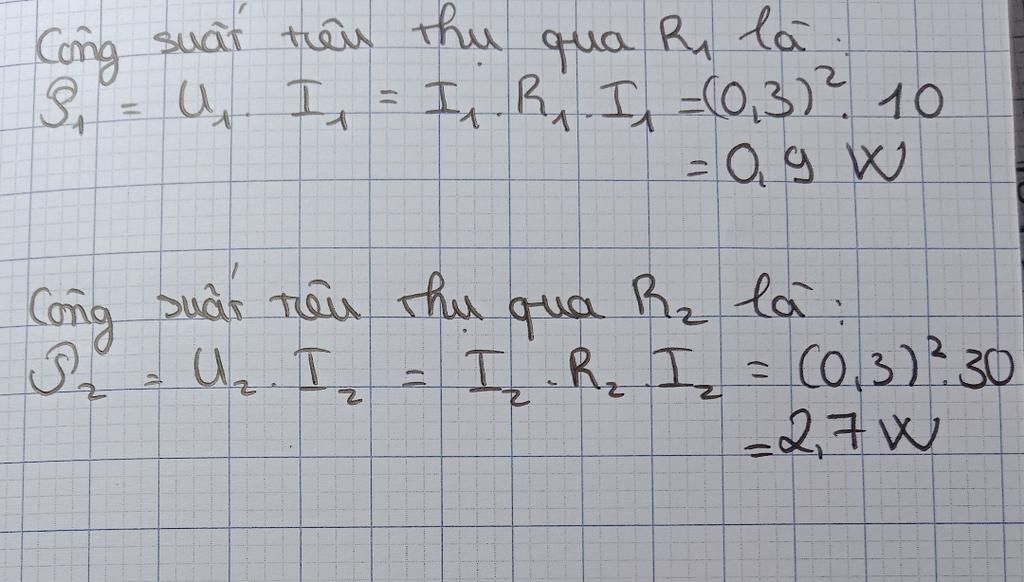 Công suất tiêu thụ qua R₁ là :
P₁ = U₁ . I₁ = I₁ . R₁ . I₁ = (0,3)² . 10
= 0,9 W
Công suất tiêu thụ qua R₂ là :
P₂ = U₂ . I₂ = I₂ . R₂ . I₂ = (0,3)² . 30
= 2,7 W